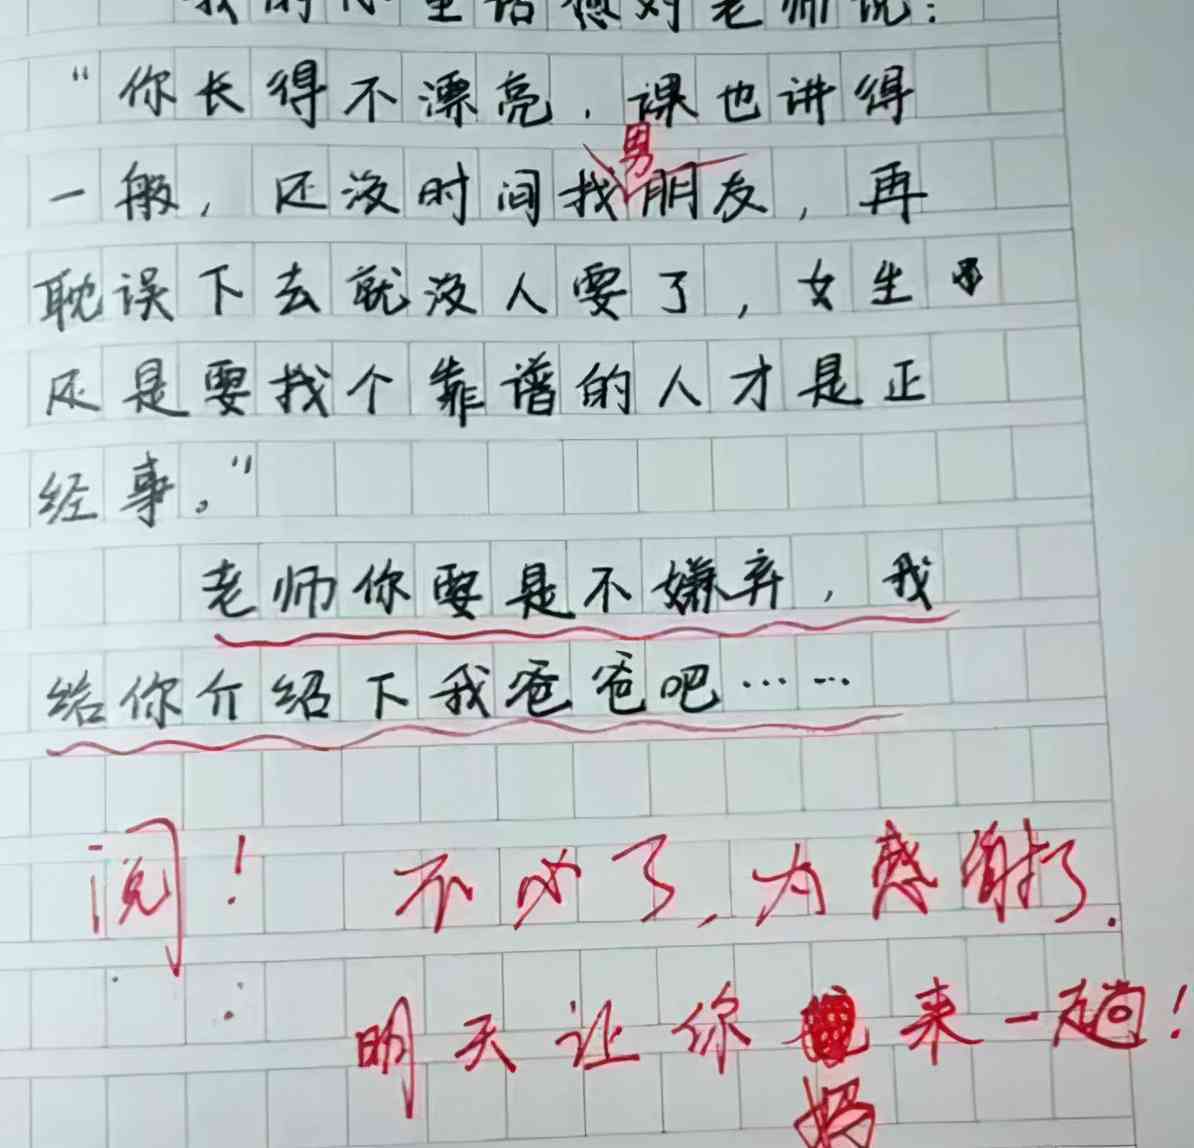 我的心里话想对老师说：
“你长得不漂亮，课也讲得
男
一般，还没时间找朋友，再
耽误下去就没人要了，女生
还是要找个靠谱的人才是正
经事。”
老师你要是不嫌弃，我
给你介绍下我爸爸吧……
阅！ 不必了，为感谢了.
明天让你来一趟！
妈